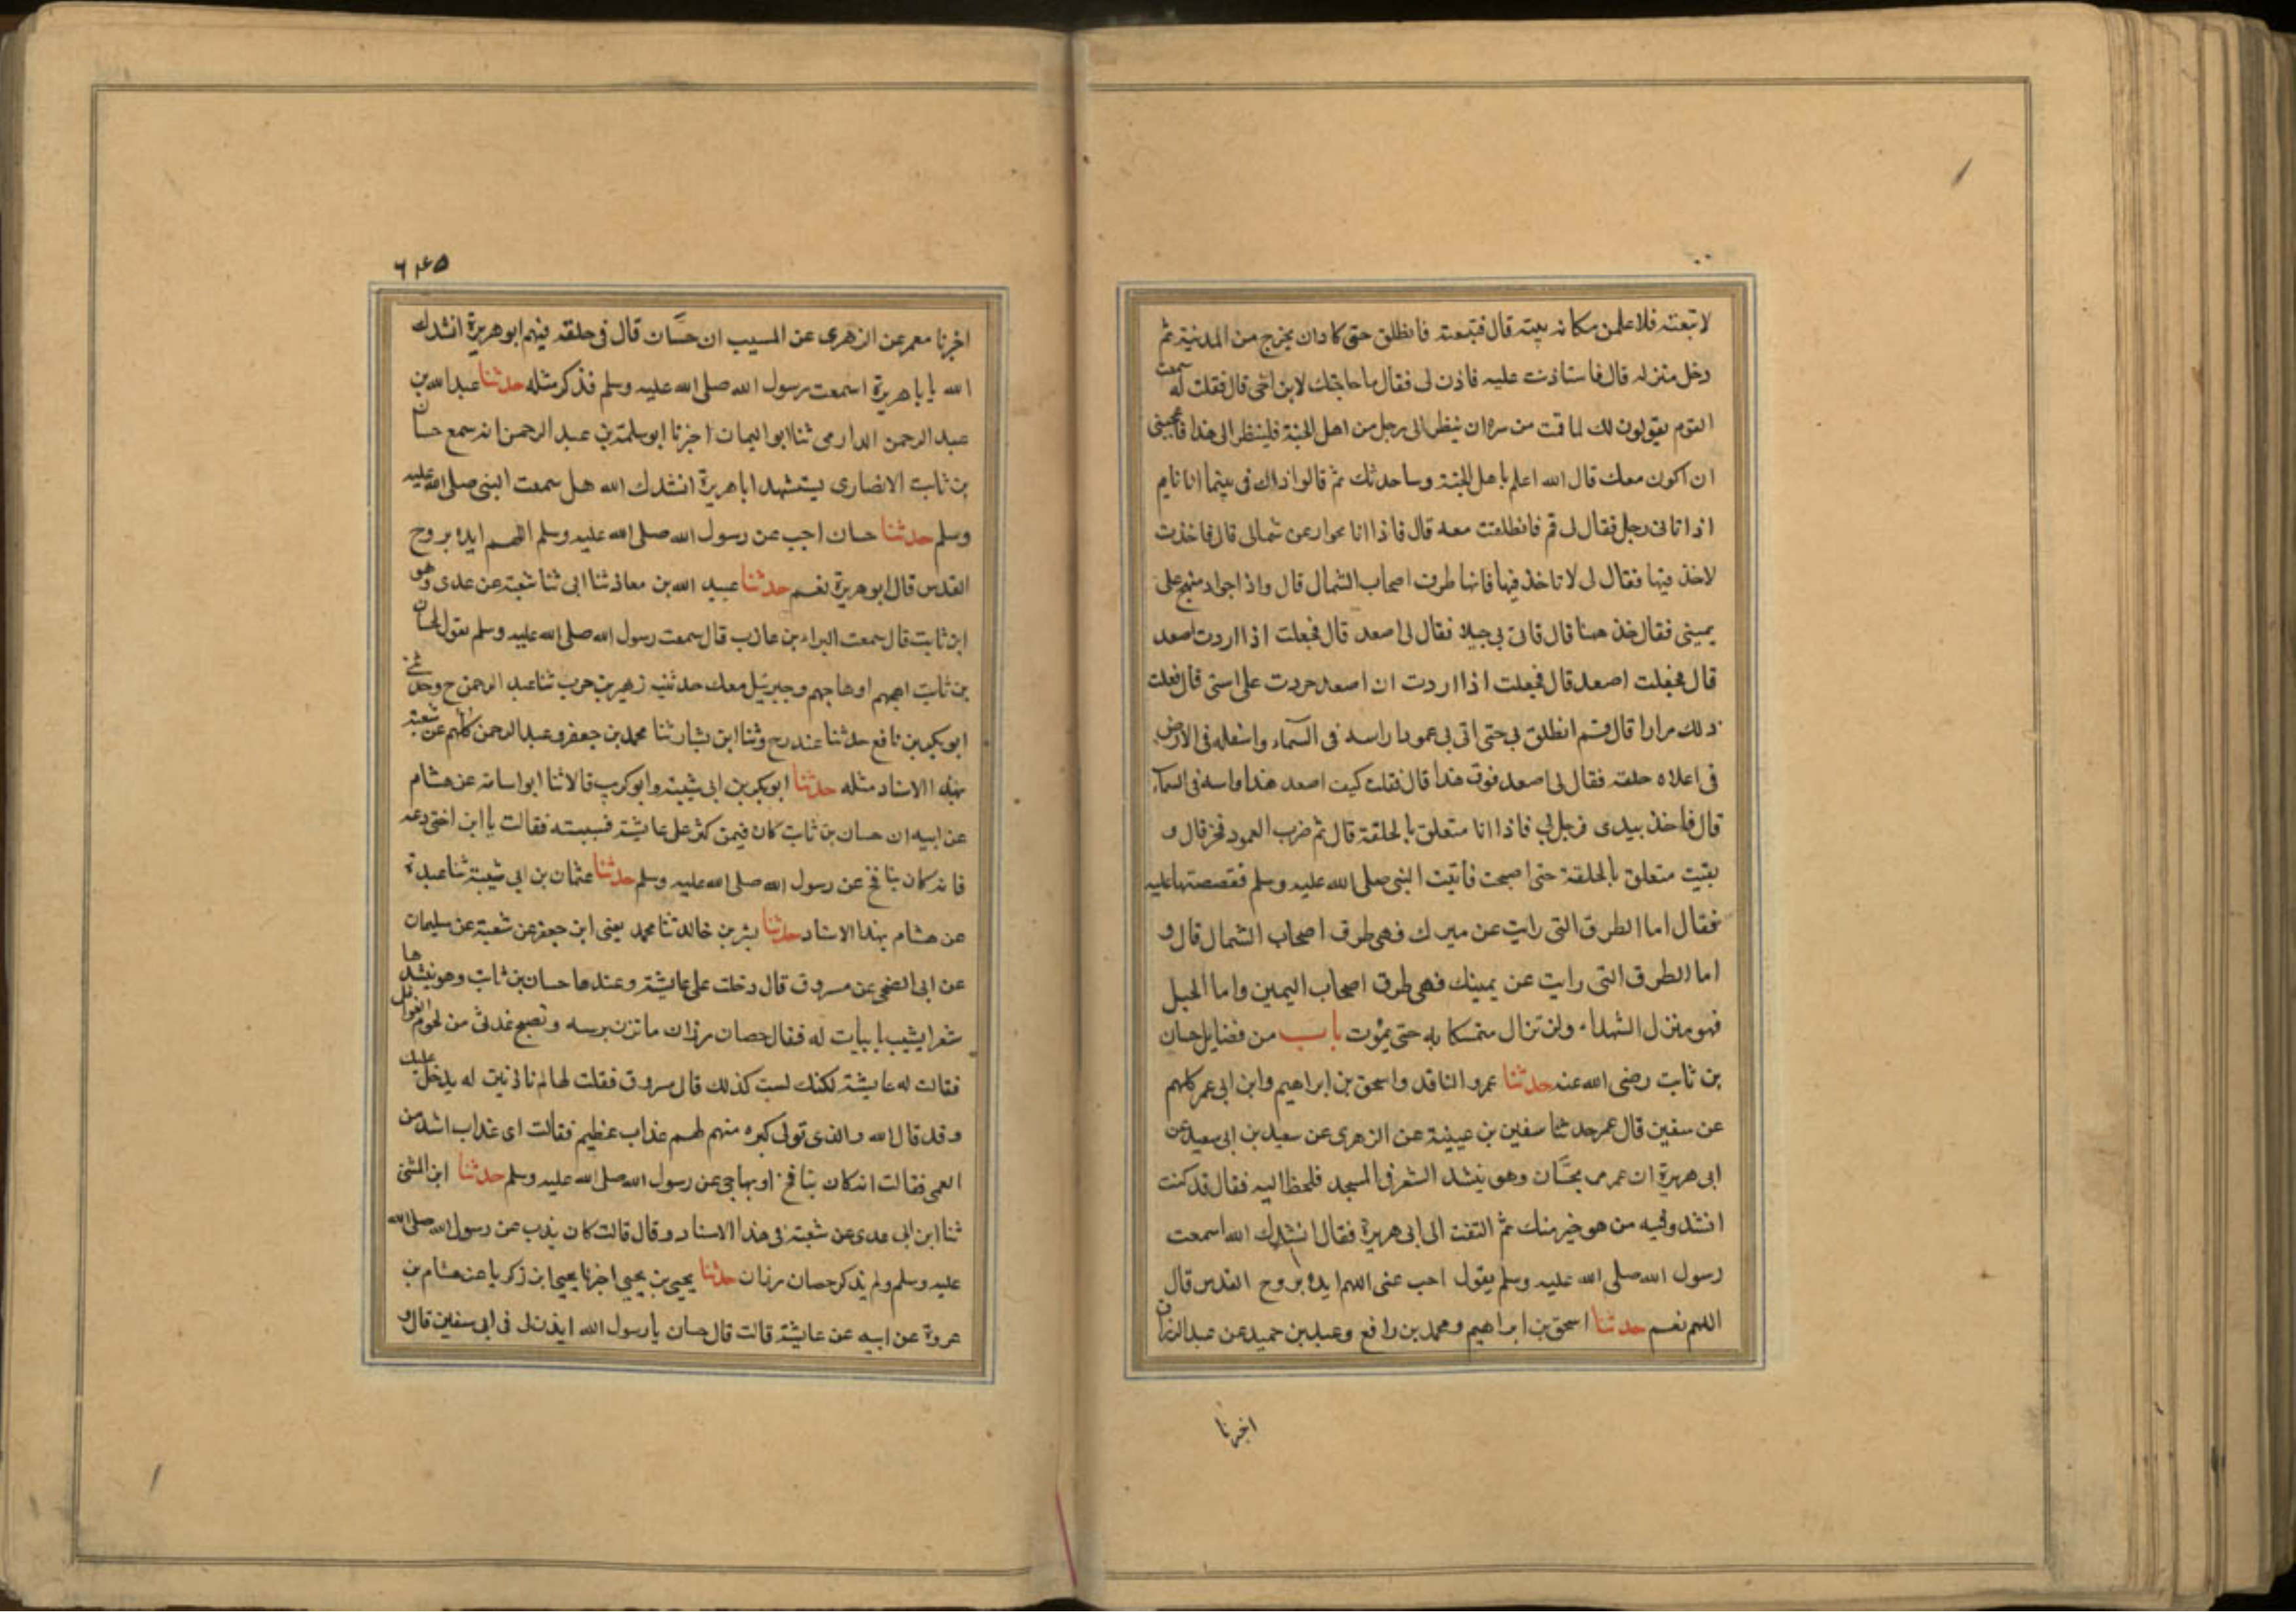 لاتبعنه فلاعلمن مكانه بيته قال فتبعته فانطلق حتى كادان يخرج من المدينة ثم
دخل منزله قال فاستاذنت عليه فاذن لى فقال ما حاجتك لابن اخى قال فقلت له سمعت
القوم يقولون لك لما قمت من سره ان ينظر الى رجل من اهل الجنة فلينظر الى هذا فاعجبنى
ان اكون معك قال الله اعلم باهل الجنة وساحدثك مم قالوا ذاك فى بينما انا نايم
اذ اتانى رجل فقال لى قم فانطلقت معه قال فاذا انا بجواد عن شمالى قال فاخذت
لاخذ فيها فقال لى لا تاخذ فيها فانها طرق اصحاب الشمال قال واذا جواد منهج على
يمينى فقال خذ ههنا قال فاتى بى جبلا فقال لى اصعد قال فجعلت اذا اردت اصعد
قال فجعلت اصعد قال فجعلت اذا اردت ان اصعد خررت على استى قال فعلت
ذلك مرارا قال ثم انطلق بى حتى اتى بى عمودا راسه فى السماء واسفله فى الارض
فى اعلاه حلقه فقال لى اصعد فوق هذا قال فقلت كيف اصعد هذا وراسه فى السماء
قال فاخذ بيدى فزجل بى فاذا انا متعلق بالحلقة قال ثم ضرب العمود فخر قال و
بقيت متعلق بالحلقة حتى اصبحت فاتيت النبى صلى الله عليه وسلم فقصصتها عليه
فقال اما الطرق التى رايت عن يسرك فهى طرق اصحاب الشمال قال و
اما الطرق التى رايت عن يمينك فهى طرق اصحاب اليمين واما الجبل
فهو منزل الشهداء ولن تزال متمسكا به حتى يموت باب من فضايل حسان
بن ثابت رضى الله عنه حدثنا عمرو الناقد واسحق بن ابراهيم وابن ابى عمر كلهم
عن سفين قال عمر حدثنا سفين بن عيينة عن الزهرى عن سعيد بن ابى سعيد عن
ابى هريرة ان عمر مر بحسّان وهو ينشد الشعر فى المسجد فلحظ اليه فقال قد كنت
انشد وفيه من هو خير منك ثم التفت الى ابى هريرة فقال انشدك الله اسمعت
رسول الله صلى الله عليه وسلم يقول اجب عنى اللهم ايده بروح القدس قال
اللهم نعم حدثنا اسحق بن ابراهيم ومحمد بن رافع وعبد بن حميد عن عبد الرزاق
اخبرنا
٦٤٥
اخبرنا معمر عن الزهرى عن المسيب ان حسّان قال فى حلقه فيهم ابو هريرة انشدك
الله يابا هريرة اسمعت رسول الله صلى الله عليه وسلم فذكر مثله حدثنا عبد الله بن
عبد الرحمن الدارمى ثنا ابو اليمان اخبرنا ابو سلمة بن عبد الرحمن انه سمع حسان
بن ثابت الانصارى يستشهد ابا هريرة انشدك الله هل سمعت النبى صلى الله عليه
وسلم حدثنا حسان اجب عن رسول الله صلى الله عليه وسلم اللهم ايده بروح
القدس قال ابو هريرة نعم حدثنا عبيد الله بن معاذ ثنا ابى ثنا شعبة عن عدى وهو
ابن ثابت قال سمعت البراء بن عازب قال سمعت رسول الله صلى الله عليه وسلم يقول لحسان
بن ثابت اهجهم اوهاجهم وجبرئيل معك حدثنيه زهير بن حرب ثنا عبد الرحمن ح وحدثنى
ابو بكر بن نافع حدثنا غندر ح وثنا ابن بشار ثنا محمد بن جعفر وعبد الرحمن كلهم عن شعبة
بهذا الاسناد مثله حدثنا ابو بكر بن ابى شيبة وابو كريب قالا ثنا ابو اسامة عن هشام
عن ابيه ان حسان بن ثابت كان فيمن كثر على عايشة فسببته فقالت يا ابن اختى دعه
فانه كان ينافخ عن رسول الله صلى الله عليه وسلم حدثنا عثمان بن ابى شيبة ثنا عبدة
عن هشام بهذا الاسناد حدثنا بشر بن خالد ثنا محمد يعنى ابن جعفر عن شعبة عن سليمان
عن ابى الضحى عن مسروق قال دخلت على عايشة وعندها حسان بن ثابت وهو ينشدها
شعرا يشبب بابيات له فقال حصان رزان ما تزن بريبه وتصبح غدثى من لحوم الغوافل
فقالت له عايشة لكنك لست كذلك قال مسروق فقلت لها لم تاذنين له يدخل عليك
وقد قال الله والذى تولى كبره منهم لهم عذاب عظيم فقالت اى عذاب اشد من
العمى فقالت انه كان ينافخ او يهاجى عن رسول الله صلى الله عليه وسلم حدثنا ابن المثنى
ثنا ابن ابى عدى عن شعبة فى هذا الاسناد وقال قالت كان يذب عن رسول الله صلى الله
عليه وسلم ولم يذكر حصان رزان حدثنا يحيى بن يحيى اخبرنا يحيى ابن زكريا عن هشام بن
عروة عن ابيه عن عايشة قالت قال حسان يا رسول الله ايذن لى فى ابى سفين قال و